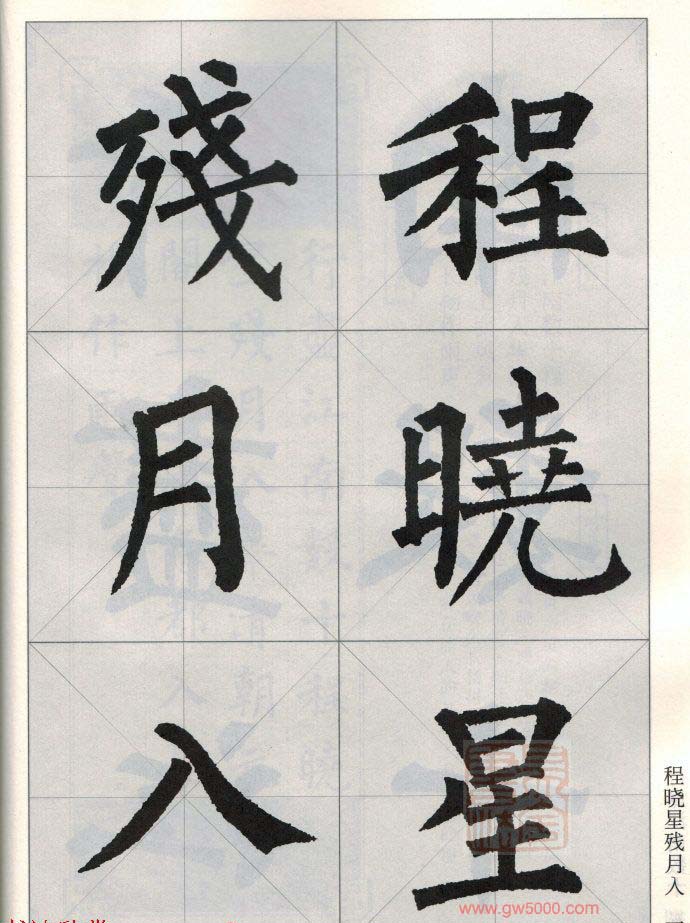 程曉星
殘月入
程晓星残月入
www.gw5000.com